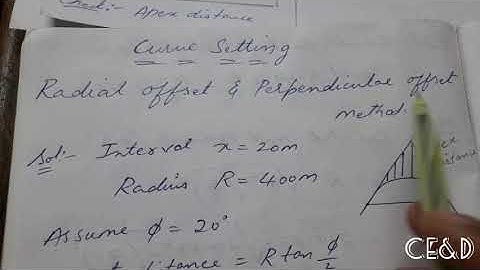 Apex distance
Curve Setting
Radial offset & Perpendicular offset
method
Sol:- Interval x = 20m
Radius R = 400m
Assume φ = 20°
distance = R tan φ/2
CE&D